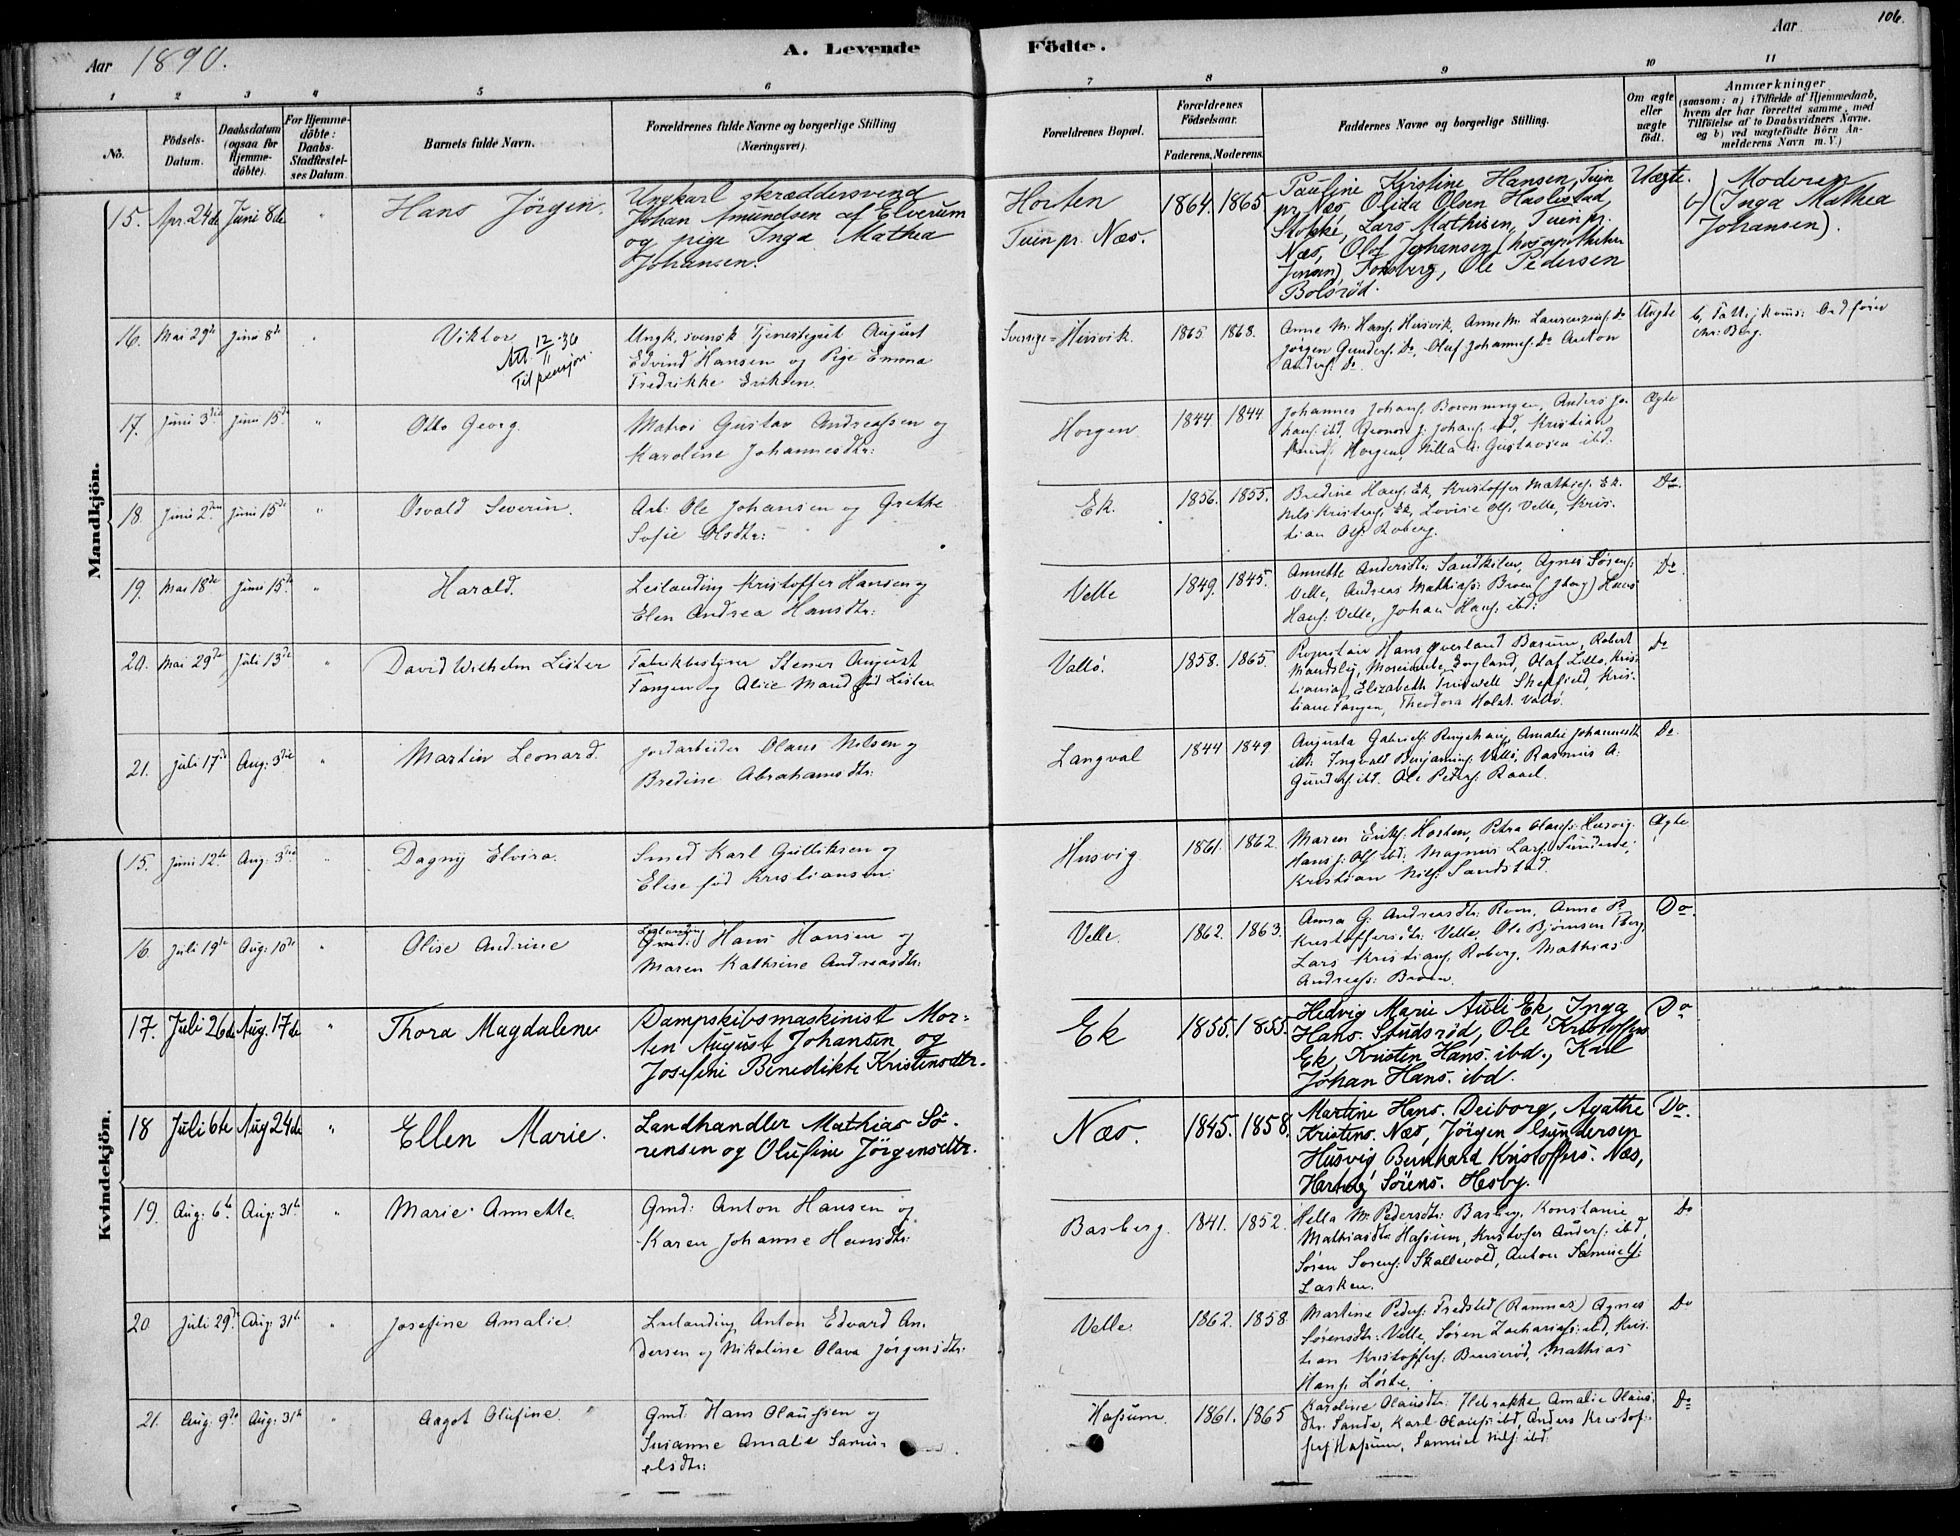 Aar 1890.
A. Levende Födte.
Aar
106.
1 2 3 4 5 6 7 8 9 10 11
No.
Födsels-Datum.
Daabsdatum (ogsaa for Hjemme-döbte).
For Hjemme-döbte: Daabs-Stadfæstel-ses Datum.
Barnets fulde Navn.
Forældrenes fulde Navne og borgerlige Stilling (Næringsvei).
Forældrenes Bopæl.
Forældrenes Födselsaar.
Faderens. Moderens.
Faddernes Navne og borgerlige Stilling.
Om ægte eller uægte födt.
Anmærkninger
(saasom: a) i Tilfælde af Hjemmedaab, hvem der har forrettet samme, med Tilföielse af to Daabsvidners Navne, og b) ved uægtefödte Börn An-melderens Navn m. V.)
Mandkjön.
15. Apr. 24de Juni 8de " Hans Jörgen.
Ungkarl skræddersvend
Johan Amundsen af Elverum
og pige Inga Mathea
Johansen.
Horten
Tuin pr. Næs.
1864. 1865
Pauline Kristine Hansen, Tuin
pr. Næs, Olida Olsen Haslestad,
Stokke, Lars Mathisen, Tuin pr.
Næs, Olaf Johansen (hos apotheker
Jensen) Tønsberg, Ole Pedersen
Bolsrød.
Uægte.
b) Moderen
(Inga Mathea
Johansen).
16. Mai 29de Juni 8de " Viktor
Att. 12/11-36
Til pensjon.
Ungk. svensk Tjenestegut August
Edvind Hansen og Pige Emma
Fredrikke Eriksen.
Sverige = Husvik.
1865. 1868.
Anne M. Hans. Husvik, Anne M. Laurens. Do
Jørgen Gunders. Do, Olaf Johannes. Do Anton
Anders. Do.
Uægte
Chr. Berg.
17. Juni 3die Juni 15de " Otto Georg.
Matros Gustav Andreassen og
Karoline Johannesdtr:
Horgen.
1844 1844
Ægte
18. Juni 2den Juni 15de " Osvald Severin.
Arb: Ole Johansen og Grethe
Sofie Olsdtr:
Ek.
1856. 1855.
Bredine Hans. Ek, Kristoffer Mathias. Ek.
Nils Kristens. Ek, Lovise Ols. Velle, Kris-
tian Ols. Roberg.
Do.
19. Mai 18de Juni 15de " Harald.
Leilænding Kristoffer Hansen og
Elen Andrea Hansdtr:
Velle
1849. 1845.
Annette Andersdtr: Sandkilen, Agnes Sørens.
Velle, Andreas Mathias: Broen (Jberg) Hans
Hans. Velle, Johan Hans. ibd:
Do.
20. Mai 29de Juli 13de " David Wilhelm Lister
Fabrikbestyrer Stener August
Tangen og Alice Maud fød Lister
Vallö.
1858. 1865.
Hans Øverland Basum, Robert
England, Olaf Lilloe, Kris-
tiania, Elizabeth Sheffield, Kris-
tiane Tangen, Theodora Holst Vallö.
Do
21. Juli 17de Aug: 3die " Martin Leonard.
Jordarbeider Olaus Nilsen og
Bredine Abrahamsdtr:
Langval
1844 1849
Augusta Gabriels. Ringshaug, Amalie Johannesdtr
ibd: Ingvald Benjamins. Vallö, Rasmus A:
Gunders. ibd. Ole Peders. Raael.
Do.
Kvindekjön.
15. Juni 12te Aug: 3die " Dagny Elvira.
Smed Karl Gulliksen og
Elise fød Kristiansen.
Husvig.
1861. 1862.
Maren Eriks. Horten, Petra Olaus. Husvig.
Hans J. Ols. ibd: Magnus Lars. Sundene,
Kristian Nils. Sandstad.
Ægte
16. Juli 19de Aug: 10de " Olise Andrine
Leilænding
(Gmd:) Hans Hansen og
Maren Kathrine Andreasdtr:
Velle.
1862. 1863.
Anna G. Andreasdtr: Roen, Anne P.
Kristoffersdtr: Velle, Ole Bjørnsen Jberg,
Lars Kristians. Roberg, Mathias
Andreass: Broen.
Do.
17. Juli 26de Aug. 17de " Thora Magdalene
Dampskibsmaskinist Mor-
ten August Johansen og
Josefine Benedikte Kristensdtr.
Ek
1855. 1855.
Hedvig Marie Auli Ek, Inga
Hans. Studsrød, Ole Kristoffers.
Ek, Kristen Hans. ibd., Karl
Johan Hans. ibd.
Do
18 Juli 6te Aug 24de " Ellen Marie.
Landhandler Mathias Sö-
rensen og Olufine Jörgensdtr.
Næs.
1845. 1858.
Martine Hans. Deiborg, Agathe
Kristens. Næs, Jörgen Gundersen
Husvig Bernhard Kristoffers. Næs,
Hartvig Sörens. Hesby.
Do.
19. Aug: 6te Aug: 31te " Marie Annette.
Gmd: Anton Hansen og
Karen Johanne Hansdtr:
Basberg.
1841. 1852.
Hella M. Pedersdtr: Basberg, Konstanie
Mathiasdtr: Hassum, Kristofer Anders. ibd,
Søren Sørens. Skallevold, Anton Samuels.
Lasken.
Do
20 Juli 29de Aug: 31te " Josefine Amalie.
Leilænding Anton Edvard An-
dersen og Nikoline Olava Jørgensdtr:
Velle.
1862. 1858.
Martine Peders. Fredsted (Ramnæs) Agnes
Sørensdtr: Velle, Søren Zacharias: ibd, Kris-
tian Kristoffers: Bruserød, Mathias
Hans. Löste.
Do
21. Aug: 9de Aug: 31te " Aagot Olufine.
Gmd: Hans Olaussen og
Susanne Amalie Samu-
elsdtr:
Hassum.
1861. 1865
Karoline Olausdtr: Amalie Olaus-
dtr: Sande, Karl Olaus. ibd, Anders Kristof-
fers. Hassum, Samuel Nils. ibd.
Do